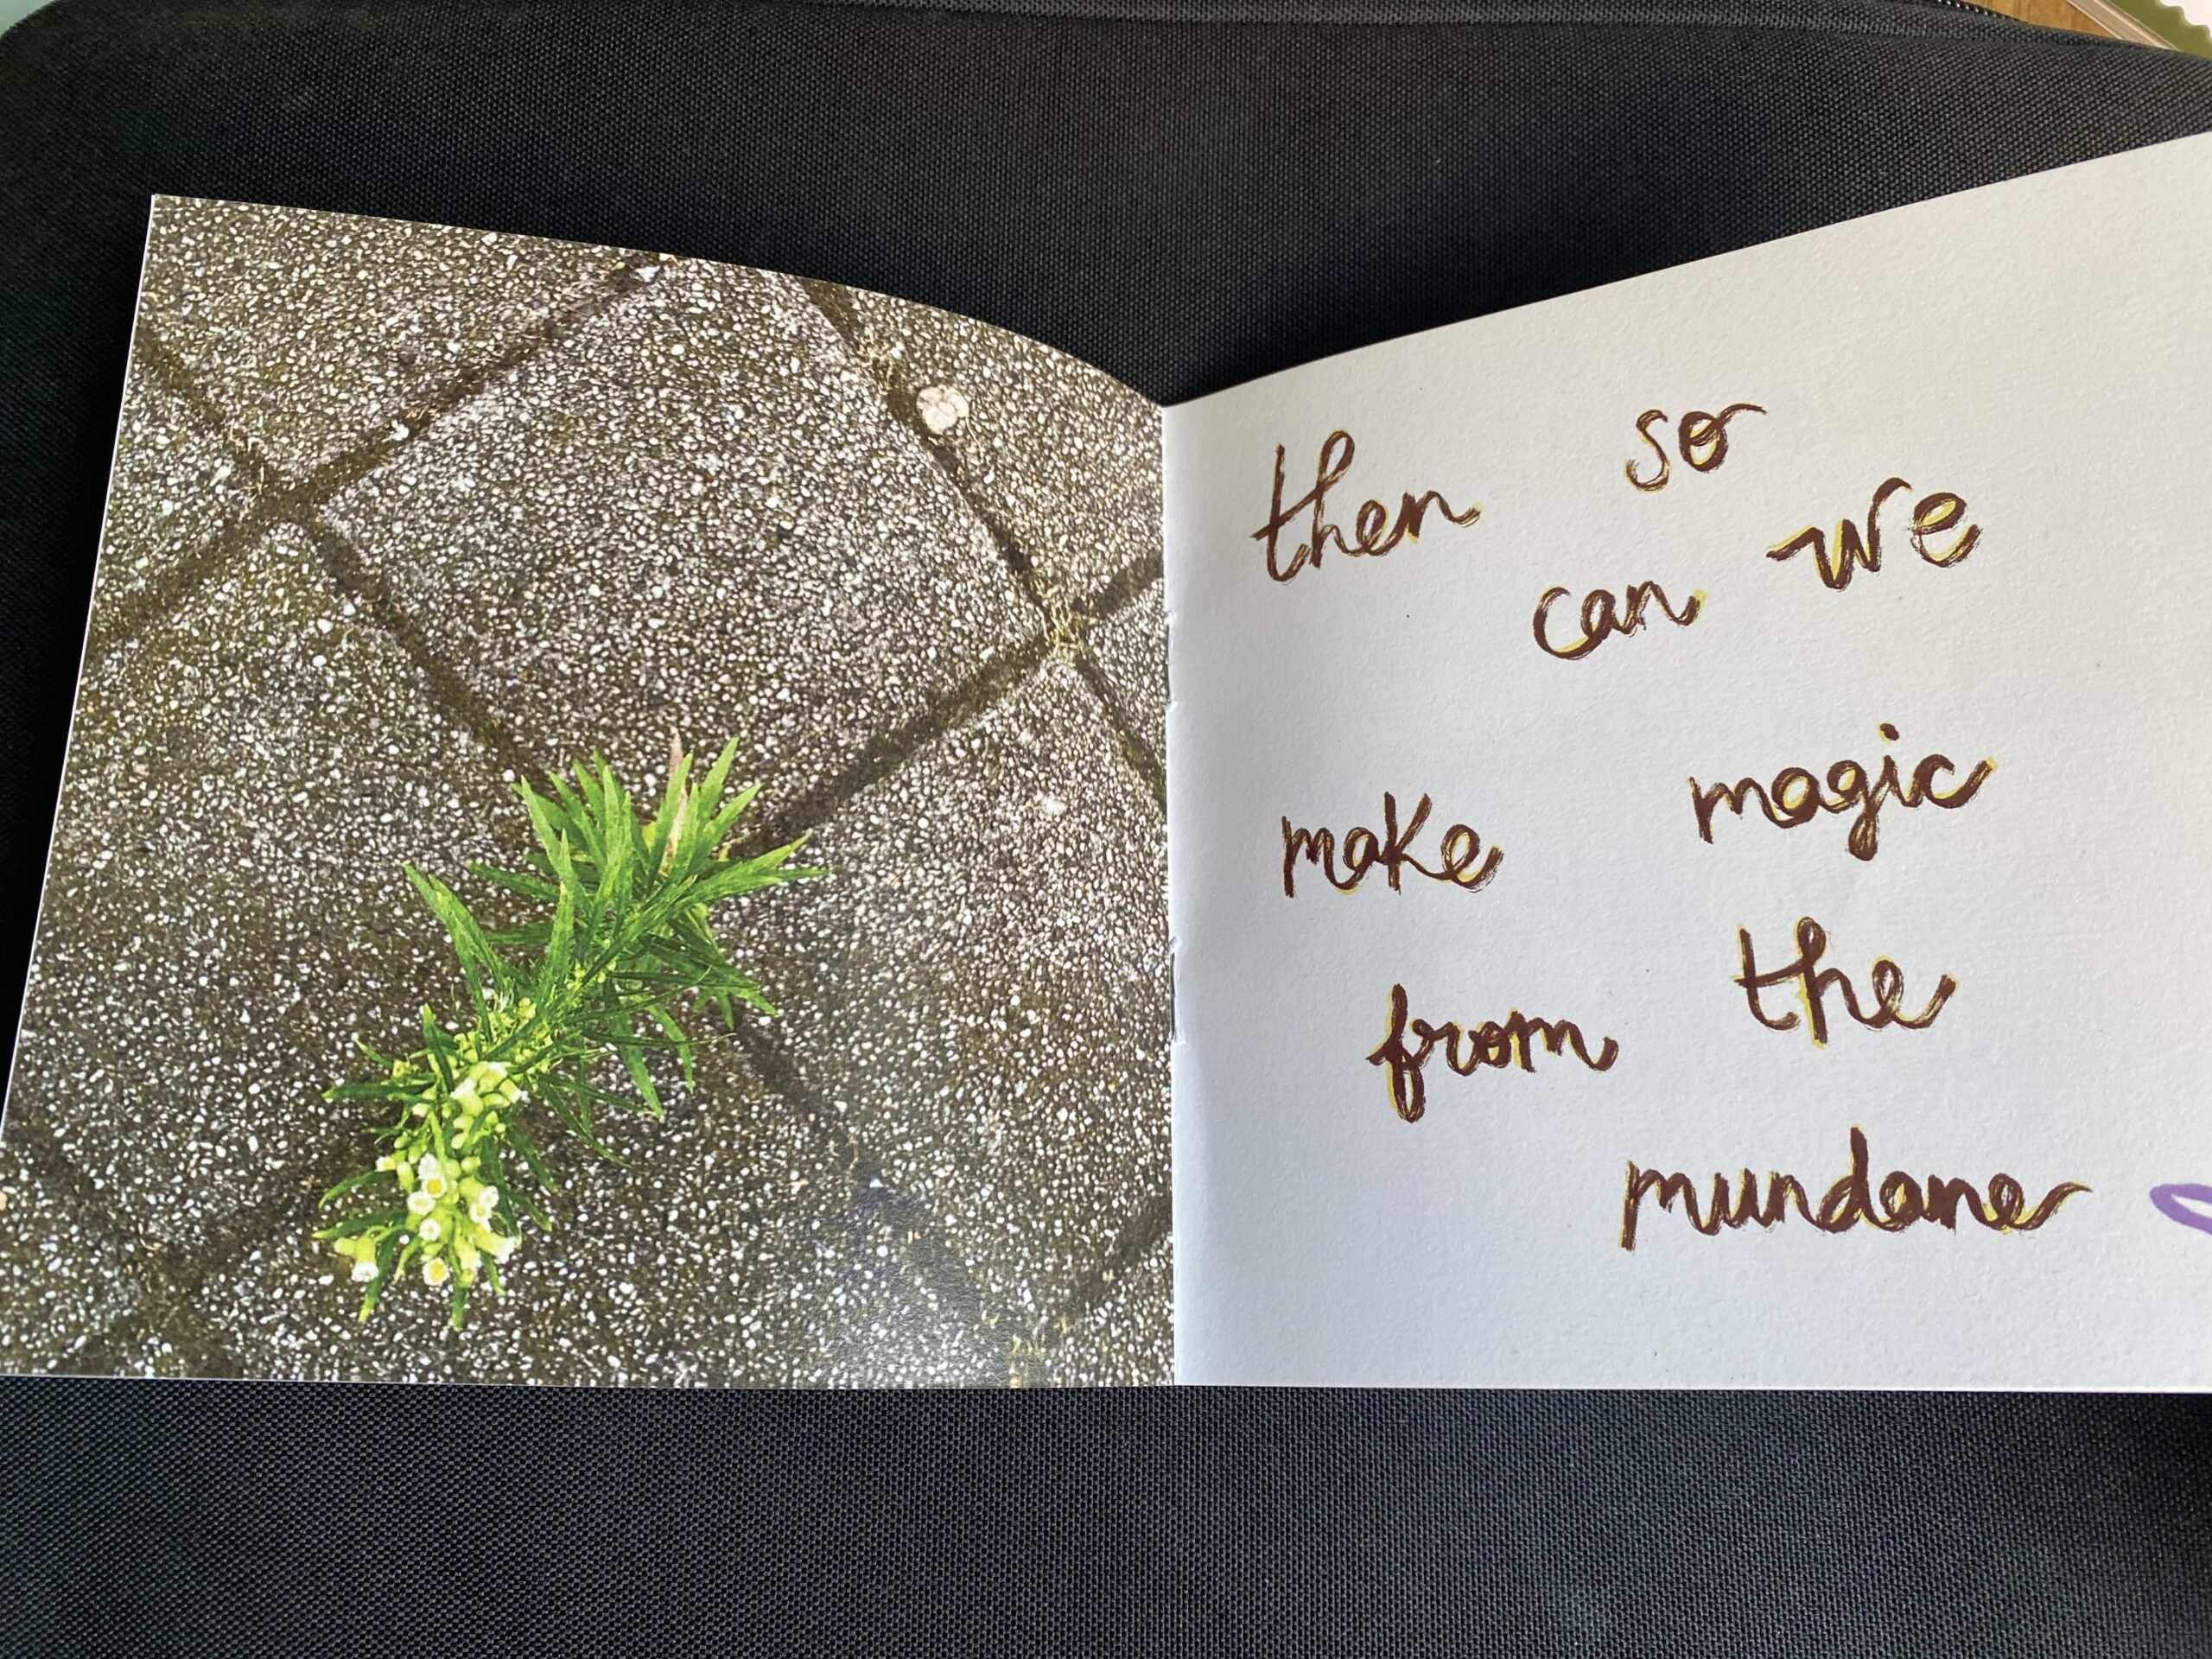 then so
can we
make magic
from the
mundane